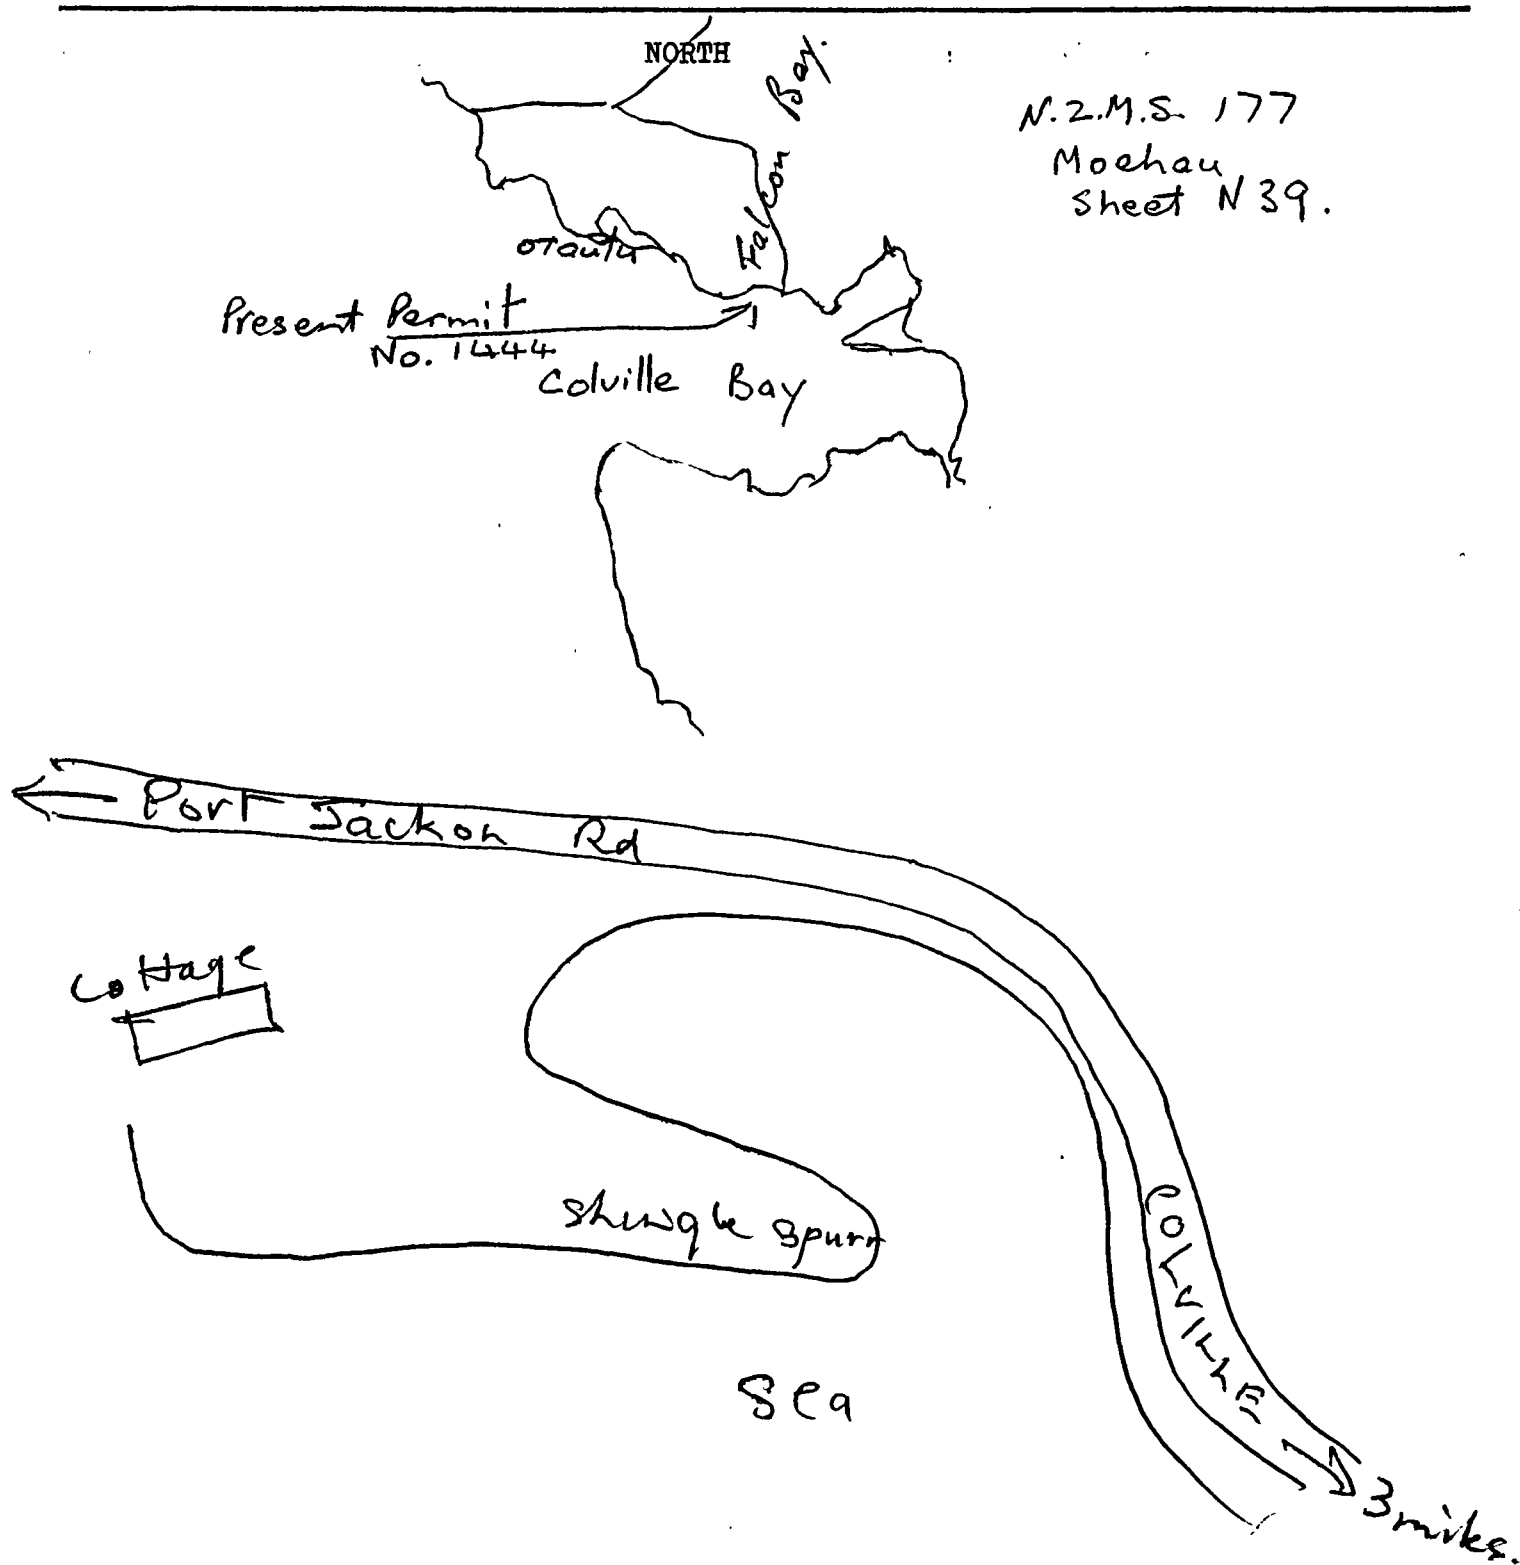 NORTH
Falcon Bay.
N.Z.M.S. 177
Moehau
Sheet N 39.
otautu
Present Permit
No. 1444
Colville Bay
Port Jackon Rd
Cottage
Shingle Spurr
Sea
COLVILLE
3 miles.